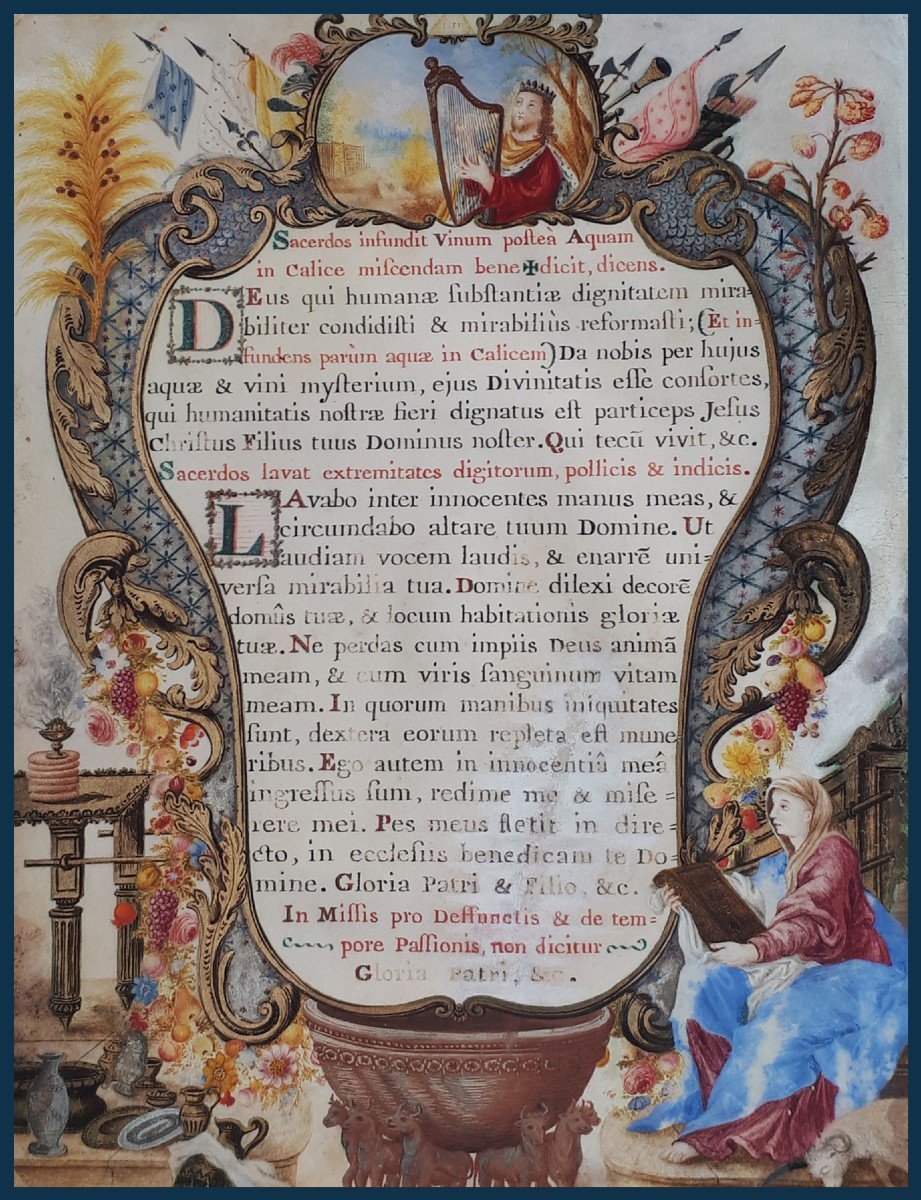 Sacerdos infundit Vinum poſteà Aquam
in Calice miſcendam bene✠dicit, dicens.
DEus qui humanæ ſubſtantiæ dignitatem mira=
biliter condidiſti & mirabiliùs reformaſti; (Et in=
fundens parùm aquæ in Calicem) Da nobis per hujus
aquæ & vini myſterium, ejus Divinitatis eſſe conſortes,
qui humanitatis noſtræ fieri dignatus eſt particeps Jeſus
Chriſtus Filius tuus Dominus noſter. Qui tecũ vivit, &c.
Sacerdos lavat extremitates digitorum, pollicis & indicis.
LAvabo inter innocentes manus meas, &
circumdabo altare tuum Domine. Ut
audiam vocem laudis, & enarrẽ uni=
verſa mirabilia tua. Domine dilexi decorẽ
domûs tuæ, & locum habitationis gloriæ
tuæ. Ne perdas cum impiis Deus animã
meam, & cum viris ſanguinum vitam
meam. In quorum manibus iniquitates
ſunt, dextera eorum repleta eſt mune
ribus. Ego autem in innocentiâ meâ
ingreſſus ſum, redime me & miſe=
rere mei. Pes meus ſtetit in dire=
cto, in eccleſiis benedicam te Do=
mine. Gloria Patri & Filio, &c.
In Miſſis pro Deffunctis & de tem=
pore Paſſionis, non dicitur
Gloria Patri, &c.